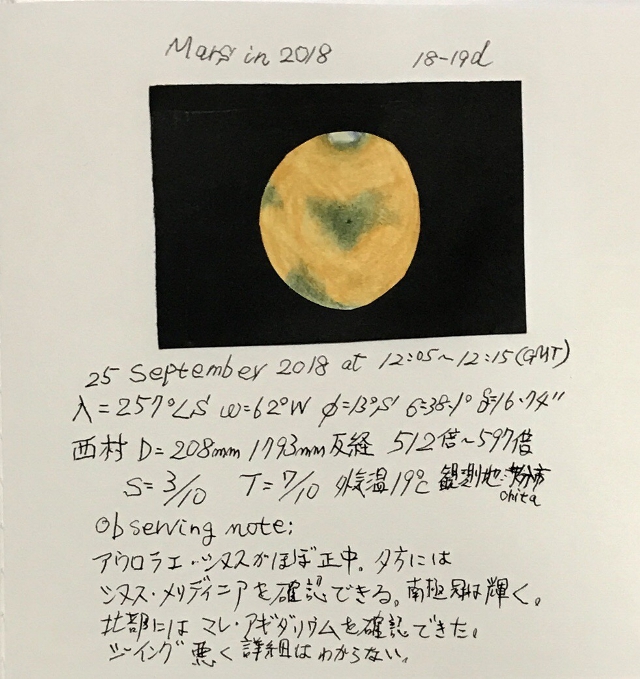 Mars in 2018 18-19d
25 September 2018 at 12:05~12:15(GMT)
λ=257°LS ω=62°W φ=13°S 6=38.1° δ=16.74"
西村 D=208mm 1793mm反経 512倍~597倍
S=3/10 T=7/10 外気温19℃ 観測地:大分市
Ohita
Observing note;
アウロラエ・シヌスがほぼ正中。夕方には
シヌス・メリディニアを確認できる。南極冠は輝く。
北部にはマレ・アキダリウムを確認できた。
シーイング悪く詳細はわからない。